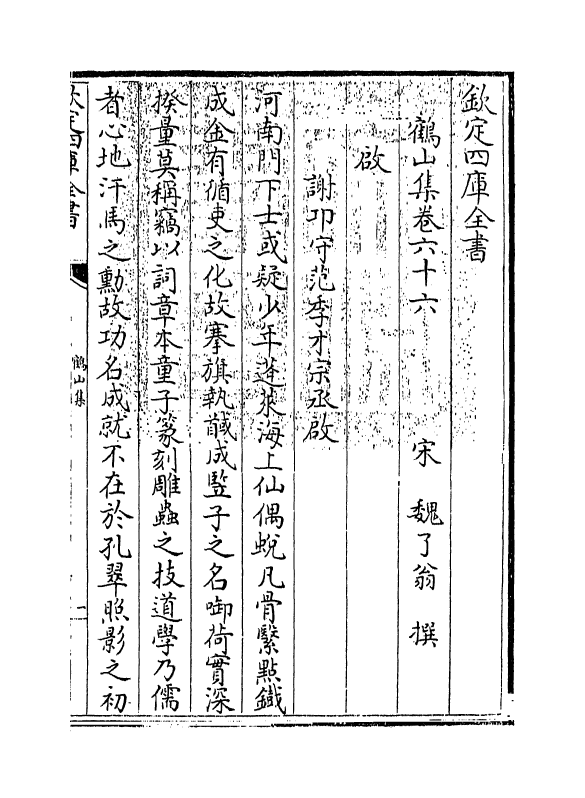 欽定四庫全書
鶴山集卷六十六　宋　魏了翁　撰
啟
謝叩守范季才宗丞啟
河南門下士或疑少年蓬萊海上仙偶蛻凡骨繄點鐵
成金有循吏之化故搴旗執馘成豎子之名啣荷實深
揆量莫稱竊以詞章本童子篆刻雕蟲之技道學乃儒
者心地汗馬之勳故功名成就不在於孔翠照影之初
欽定四庫全書
鶴山集
一